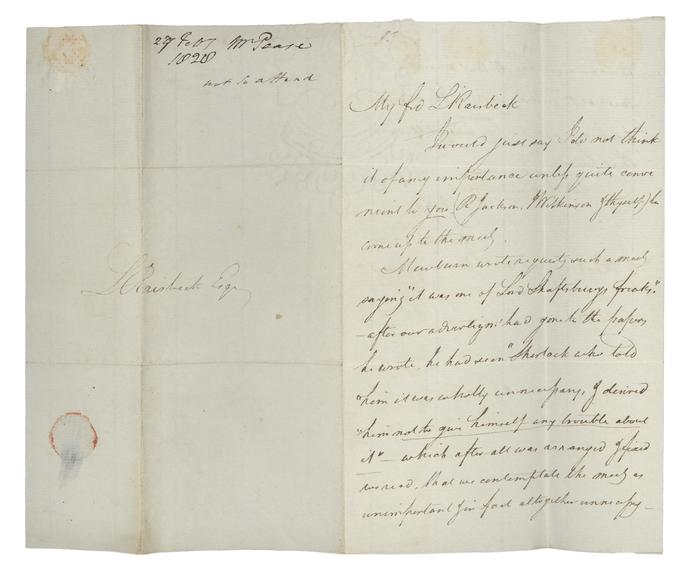 27 Feby Mr Pease
1828
not to attend
L Raisbeck Esqr
My frd L Raisbeck
I would just say I do not think
it of any importance unless quite conve
nient to you (R Jackson, J Wilkinson & thyself) to
come up to the meetg.
Mewburn wrote requestg such a meetg
saying "it was one of Lord Shaftsbury's freaks".
– after our advertisnt had gone to the papers
he wrote, he had seen "Sherlock who told
"him it was wholly unnecessary, & desired
"him not to give himself any trouble about
it" – which after all was arranged & fixed
we read, that we contemplate the meetg as
unimportant & in fact altogether unnecessy –